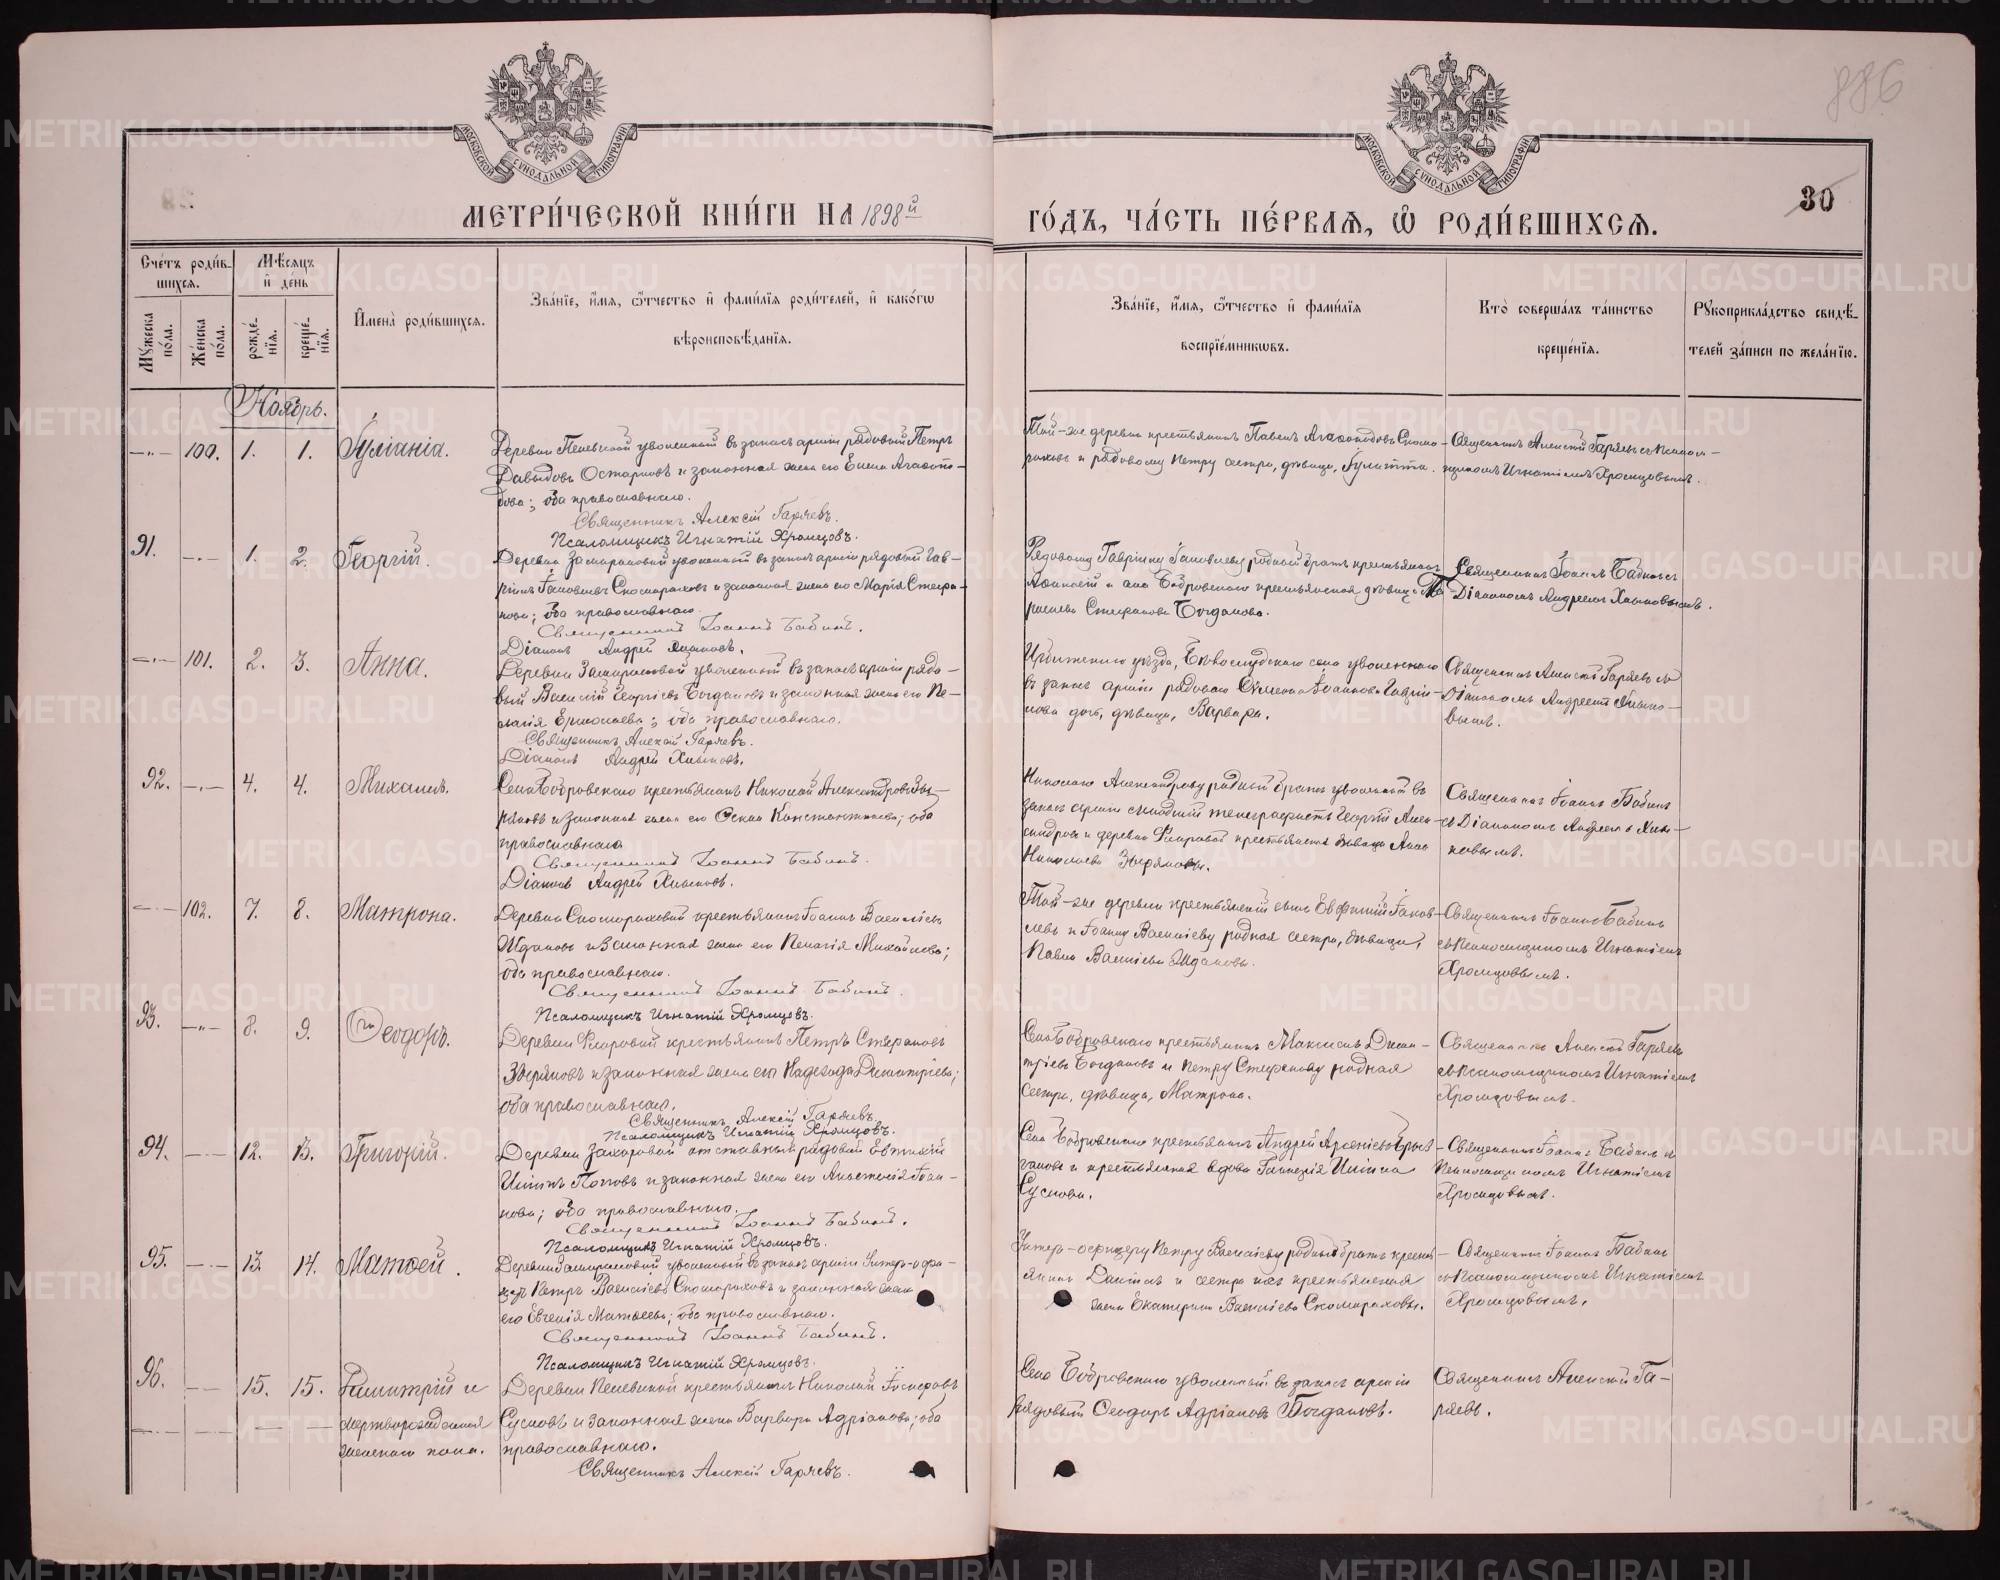 886
МОСКОВСКОЙ СУНОДАЛЬНОЙ ТИПОГРАФІИ
МОСКОВСКОЙ СУНОДАЛЬНОЙ ТИПОГРАФІИ
30
МЕТРИ́ЧЕСКОЙ КНИ́ГИ НА 1898й ГО́ДЪ, ЧА́СТЬ ПЕ́РВАѦ, Ѡ҆ РОДИ́ВШИХСѦ.
Сче́тъ роди́вшихсѧ.
Мꙋ́жеска по́ла.
Же́нска по́ла.
Мѣ́сѧцъ и҆ де́нь
рожде́нїѧ.
креще́нїѧ.
И҆мена̀ роди́вшихсѧ.
Зва́нїе, и҆́мѧ, ѻ҆́тчество и҆ фами́лїѧ роди́телей, и҆ како́гѡ вѣроисповѣ́данїѧ.
Зва́нїе, и҆́мѧ, ѻ҆́тчество и҆ фами́лїѧ воспрїе́мникѡвъ.
Кто̀ соверша́лъ та́инство креще́нїѧ.
Рꙋкоприкла́дство свидѣ́телей за́писи по жела́нїю.
Ноябрь.
100. 1. 1. Іуліанія.
Деревни Пелевиной уволенный въ запасъ арміи рядовый Петръ
Давыдовъ Остарковъ и законная жена его Елена Агафонова; оба православнаго.
Священникъ Алексій Гаряевъ.
Псаломщикъ Игнатій Хромцовъ.
Той-же деревни крестьянинъ Павелъ
и рядовому Петру сестра, дѣвица, Іулитта.
Священникъ Алексій Гаряевъ съ псаломщикомъ Игнатіемъ Хромцовымъ.
91. 1. 2. Георгій.
уволенный въ запасъ арміи рядовый Гавріилъ Іаковлевъ Скоморохов и законная жена его Марія Стефанова; оба православнаго.
Священникъ Іоаннъ Бабинъ.
Діаконъ Андрей Хлыновъ.
Рядовому Гавріилу Іаковлеву родный братъ крестьянинъ
и села Бобровскаго крестьянская дѣвица
Стефанова Богданова.
Священникъ Іоаннъ Бабинъ съ
Діакономъ Андреемъ Хлыновымъ.
101. 2. 3. Анна.
уволенный въ запасъ арміи рядовый Василій Георгіевъ Богдановъ и законная жена его Пелагія Ермолаева; оба православнаго.
Священникъ Алексій Гаряевъ.
Діаконъ Андрей Хлыновъ.
Ирбитскаго уѣзда, села уволеннаго
въ запасъ арміи рядоваго Іоаннова Гаврилова дочь, дѣвица, Варвара.
Священникъ Алексій Гаряевъ съ
Діакономъ Андреемъ Хлыновымъ.
92. 4. 4. Михаилъ.
Села Бобровскаго крестьянинъ Николай Александровъ Зыряновъ и законная жена его Ксенія Константинова; оба
православнаго
Священникъ Іоаннъ Бабинъ.
Діаконъ Андрей Хлыновъ.
Николаю Александрову родный братъ уволенный въ
запасъ арміи младшій телеграфистъ Георгій Александровъ и деревни Фларовой крестьянская дѣвица Анна
Николаева Зырянова.
Священникъ Іоаннъ Бабинъ
съ Діакономъ Андреемъ Хлыновымъ.
102. 7. 8. Матрона.
Деревни Скомороховой крестьянинъ Іоаннъ Васильевъ
Ждановъ и законная жена его Пелагія Михайлова;
оба православнаго.
Священникъ Іоаннъ Бабинъ.
Псаломщикъ Игнатій Хромцовъ.
Той-же деревни крестьянскій сынъ Евфимій Іаковлевъ и Іоанну Васильеву родная сестра, дѣвица,
Павла Васильева Жданова.
Священникъ Іоаннъ Бабинъ
съ Псаломщикомъ Игнатіемъ
Хромцовымъ.
93. 8. 9. Ѳеодоръ.
Деревни Фларовой крестьянинъ Петръ Стефановъ
Зыряновъ и законная жена его Надежда Димитріева;
оба православнаго.
Священникъ Алексій Гаряевъ.
Псаломщикъ Игнатій Хромцовъ.
Села Бобровскаго крестьянинъ Максимъ Димитріевъ Богдановъ и Петру Стефанову родная
сестра, дѣвица, Матрона.
Священникъ Алексій Гаряевъ
съ Псаломщикомъ Игнатіемъ
Хромцовымъ.
94. 12. 13. Григорій.
Деревни Захаровой отставный рядовый Евтихій
Ильинъ Поповъ и законная жена его Анастасія Іоаннова; оба православнаго.
Священникъ Іоаннъ Бабинъ.
Псаломщикъ Игнатій Хромцовъ.
Села Бобровскаго крестьянинъ Андрей Арсеніевъ
и крестьянская вдова Гликерія Ильина
Суслова.
Священникъ Іоаннъ Бабинъ съ
Псаломщикомъ Игнатіемъ
Хромцовымъ.
95. 13. 14. Матѳей.
уволенный въ запасъ арміи Унтеръ-офицеръ Петръ Васильевъ Скомороховъ и законная жена
его Евгенія Матѳеева; оба православнаго.
Священникъ Іоаннъ Бабинъ.
Псаломщикъ Игнатій Хромцовъ.
Унтеръ-офицеру Петру Васильеву родный братъ крестьянинъ и сестра ихъ крестьянская
жена Екатерина Васильева Скоморохова.
Священникъ Іоаннъ Бабинъ
съ Псаломщикомъ Игнатіемъ
Хромцовымъ.
96. 15. 15. Димитрій и
мертворожденная
женскаго пола.
Деревни Пелевиной крестьянинъ Николай Іосифовъ
Сусловъ и законная жена Варвара Адріанова; оба
православнаго.
Священникъ Алексій Гаряевъ.
Села Бобровскаго уволенный въ запасъ арміи
рядовый Ѳеодоръ Адріановъ Богдановъ.
Священникъ Алексій Гаряевъ.
METRIKI.GASO-URAL.RU